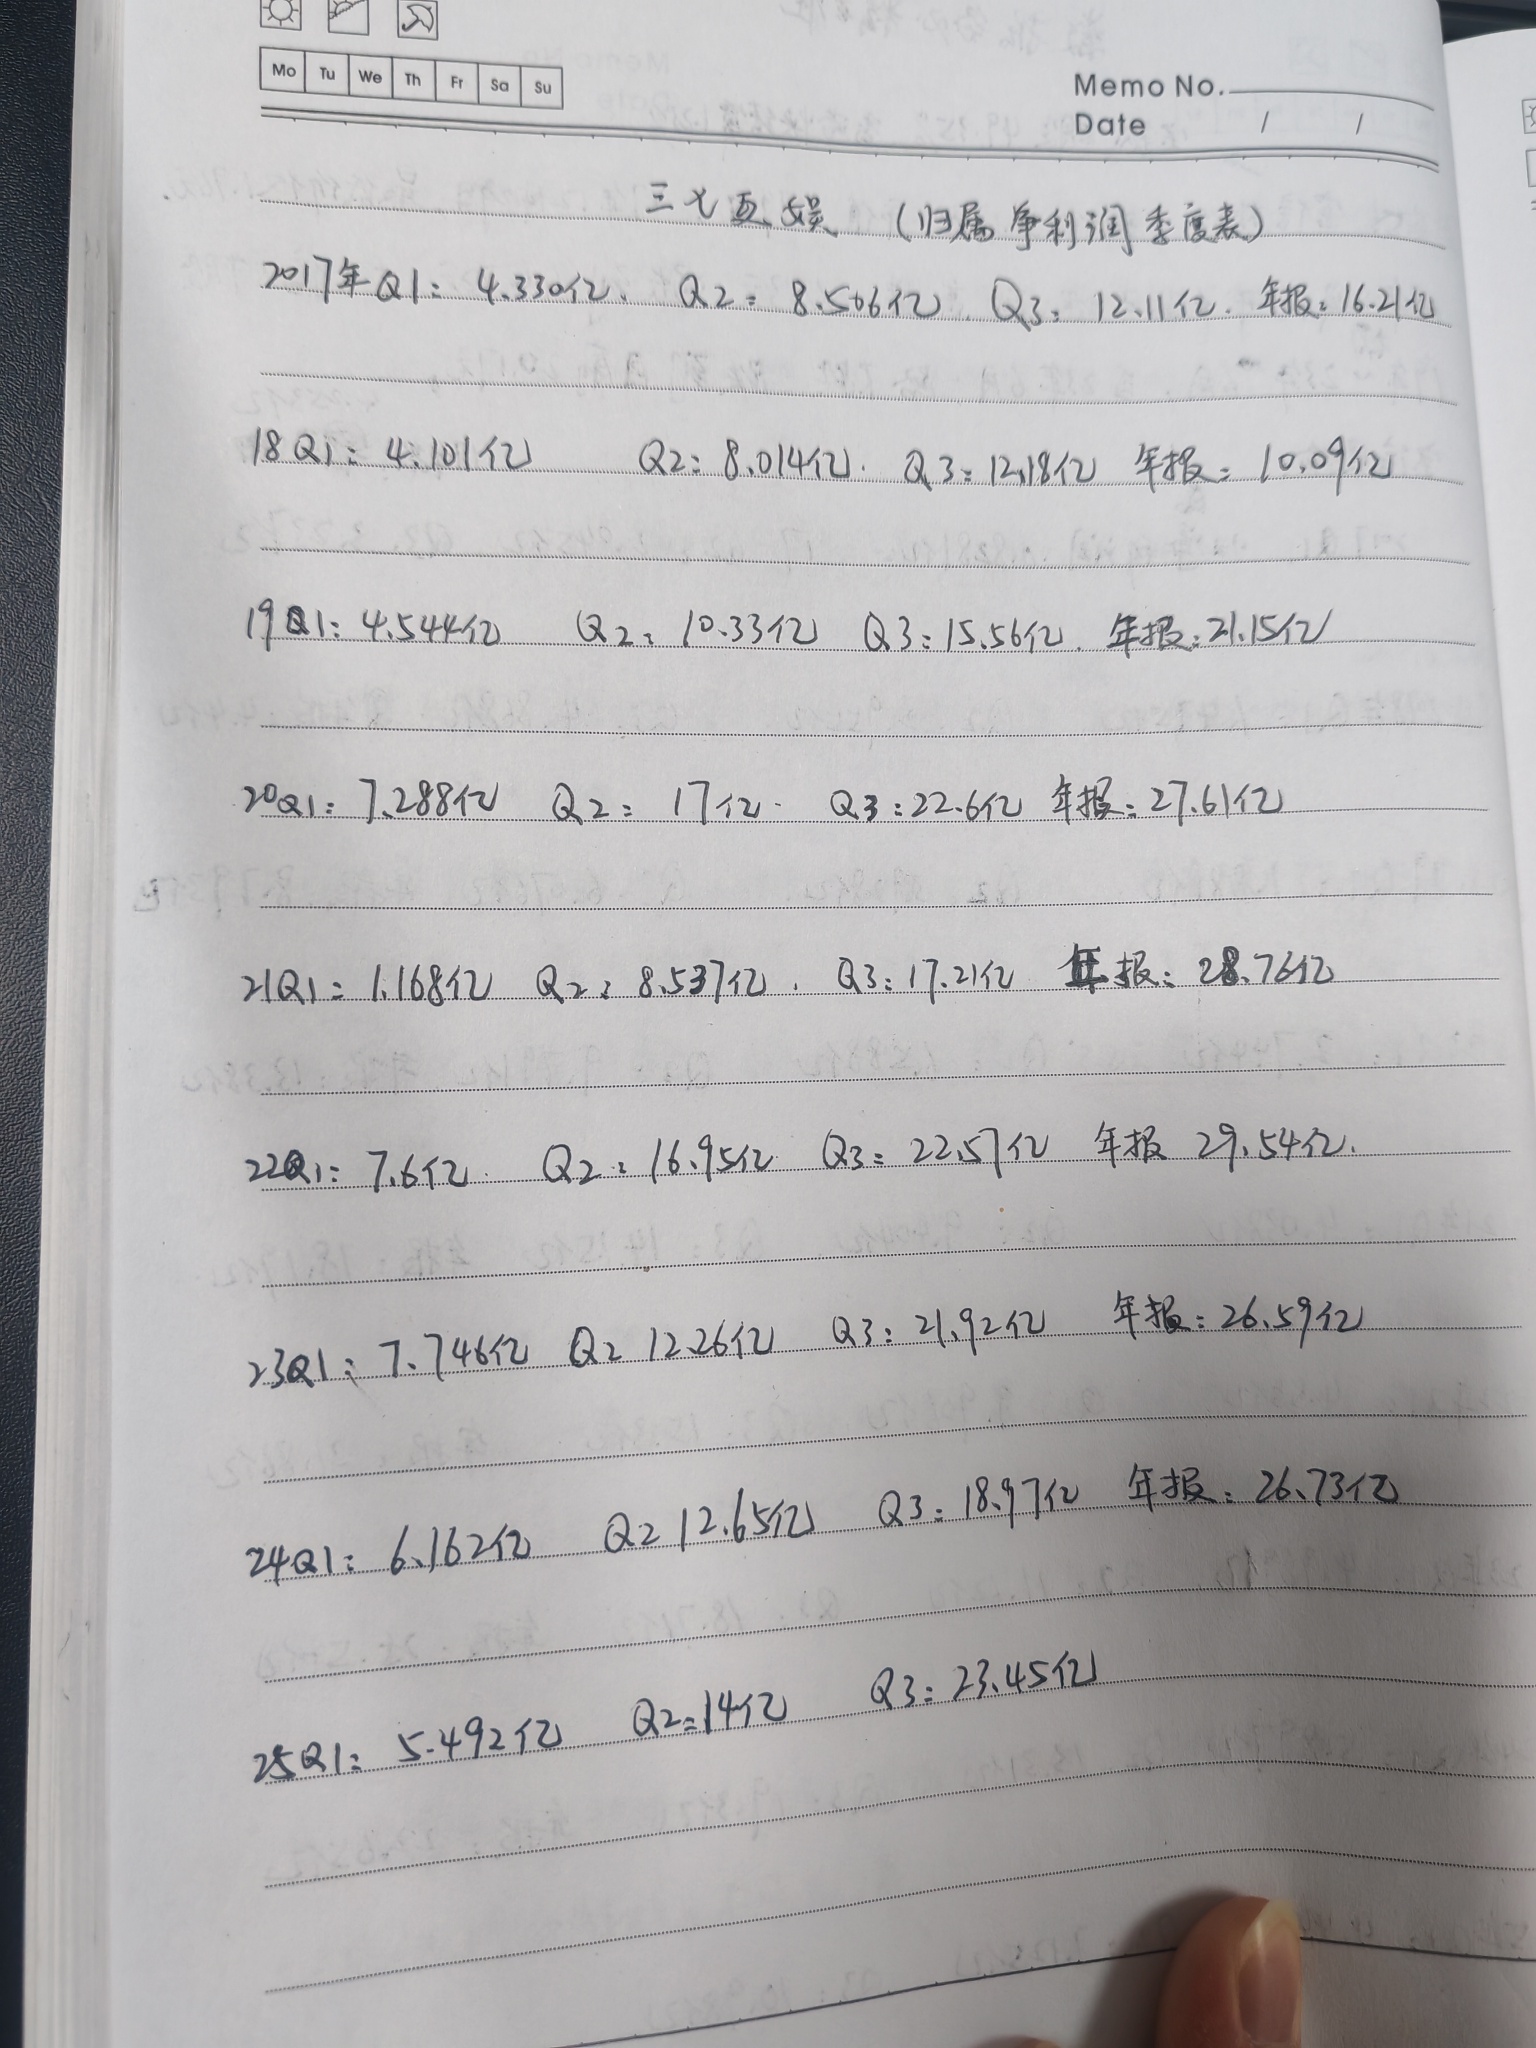 Mo Tu We Th Fr Sa Su
Memo No.
Date / /
三七互娱 (归属净利润季度表)
2017年Q1: 4.330亿. Q2: 8.506亿. Q3: 12.11亿. 年报: 16.21亿
18Q1: 4.101亿 Q2: 8.014亿. Q3: 12.18亿 年报: 10.09亿
19Q1: 4.544亿 Q2: 10.33亿 Q3: 15.56亿. 年报: 21.15亿
20Q1: 7.288亿 Q2: 17亿. Q3: 22.6亿 年报: 27.61亿
21Q1: 1.168亿 Q2: 8.537亿. Q3: 17.21亿 年报: 28.76亿
22Q1: 7.6亿. Q2: 16.95亿 Q3: 22.57亿 年报 29.54亿.
23Q1: 7.746亿 Q2 12.26亿 Q3: 21.92亿 年报: 26.59亿
24Q1: 6.162亿 Q2 12.65亿 Q3: 18.97亿 年报: 26.73亿
25Q1: 5.492亿 Q2=14亿 Q3: 23.45亿